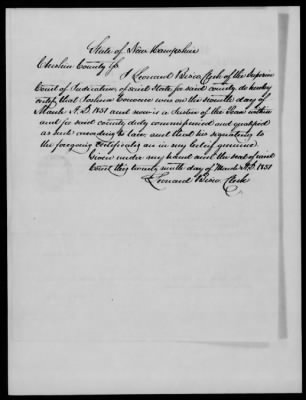 State of New Hampshire
Cheshire County Ss.
I Leonard Bisco Clerk of the Superior
Court of Judicature, of said State for said county do hereby
certify that Joshua was on the day of
March A.D. 1851 and now is a Justice of the Peace within
and for said county duly commissioned and qualified
as such according to law, and that his signatures to
the foregoing certificates are in my belief genuine
Given under my hand and the seal of said
Court this twenty ninth day of March A.D. 1851
Leonard Bisco, Clerk